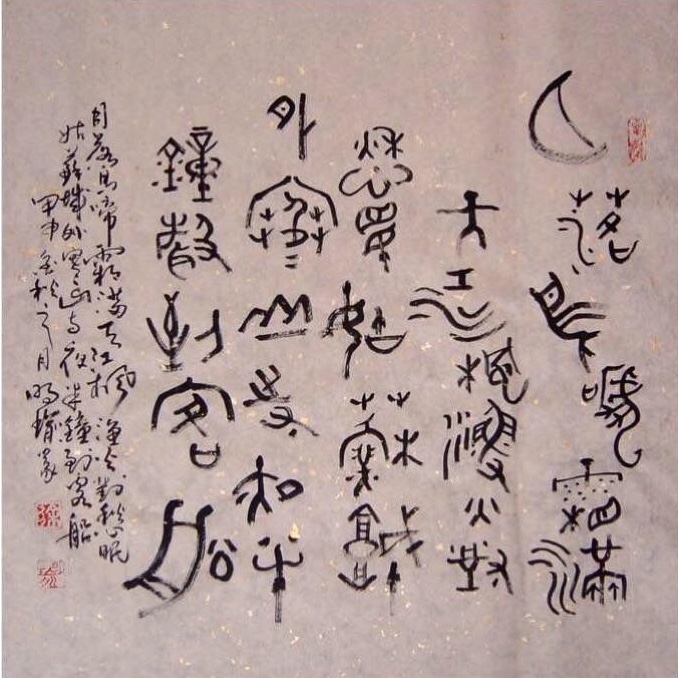 月落烏啼霜滿
天江楓漁火對
愁眠姑蘇城
外寒山寺夜半
鐘聲到客船
月落烏啼霜滿天江楓漁火對愁眠
姑蘇城外寒山寺夜半鐘聲到客船
甲申金秋月篆